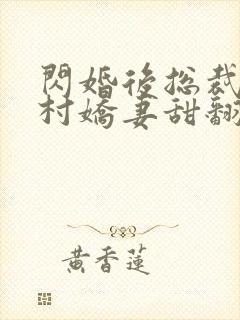 閃婚後総裁
村嬌妻甜翻
黃香蓮